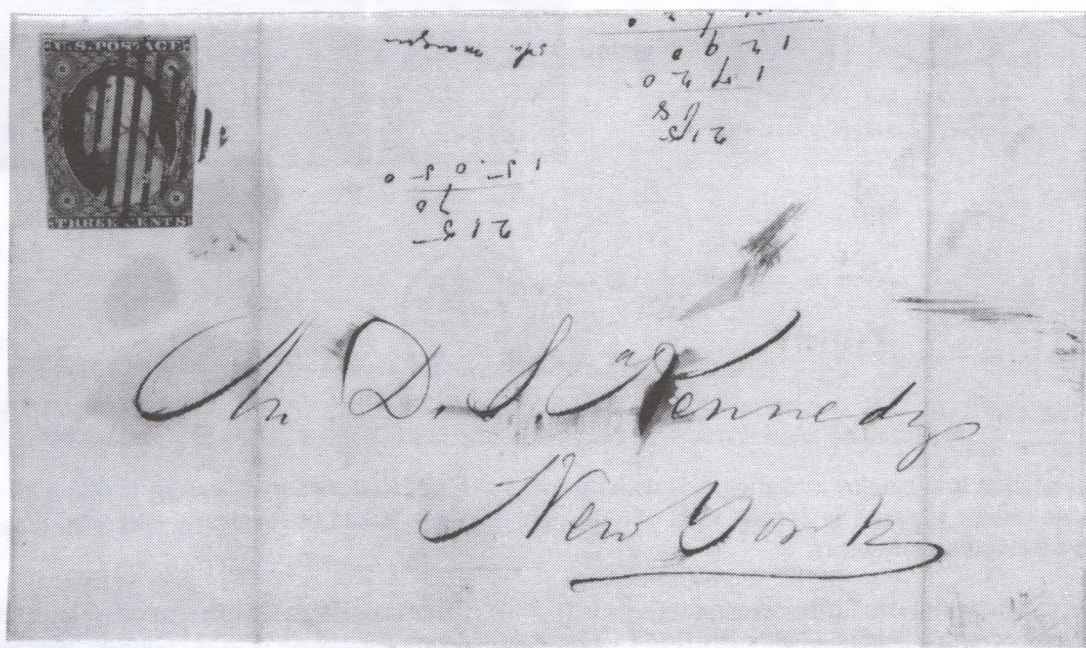 U.S. POSTAGE
THREE CENTS
215
70
15050
215
68
1720
1290
Mr D. S. Kennedy
New York